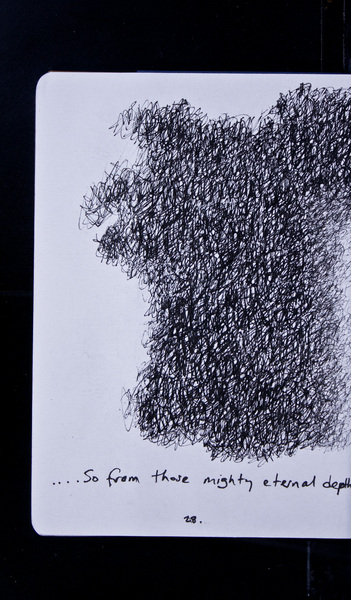 ....So from those mighty eternal depth
28.